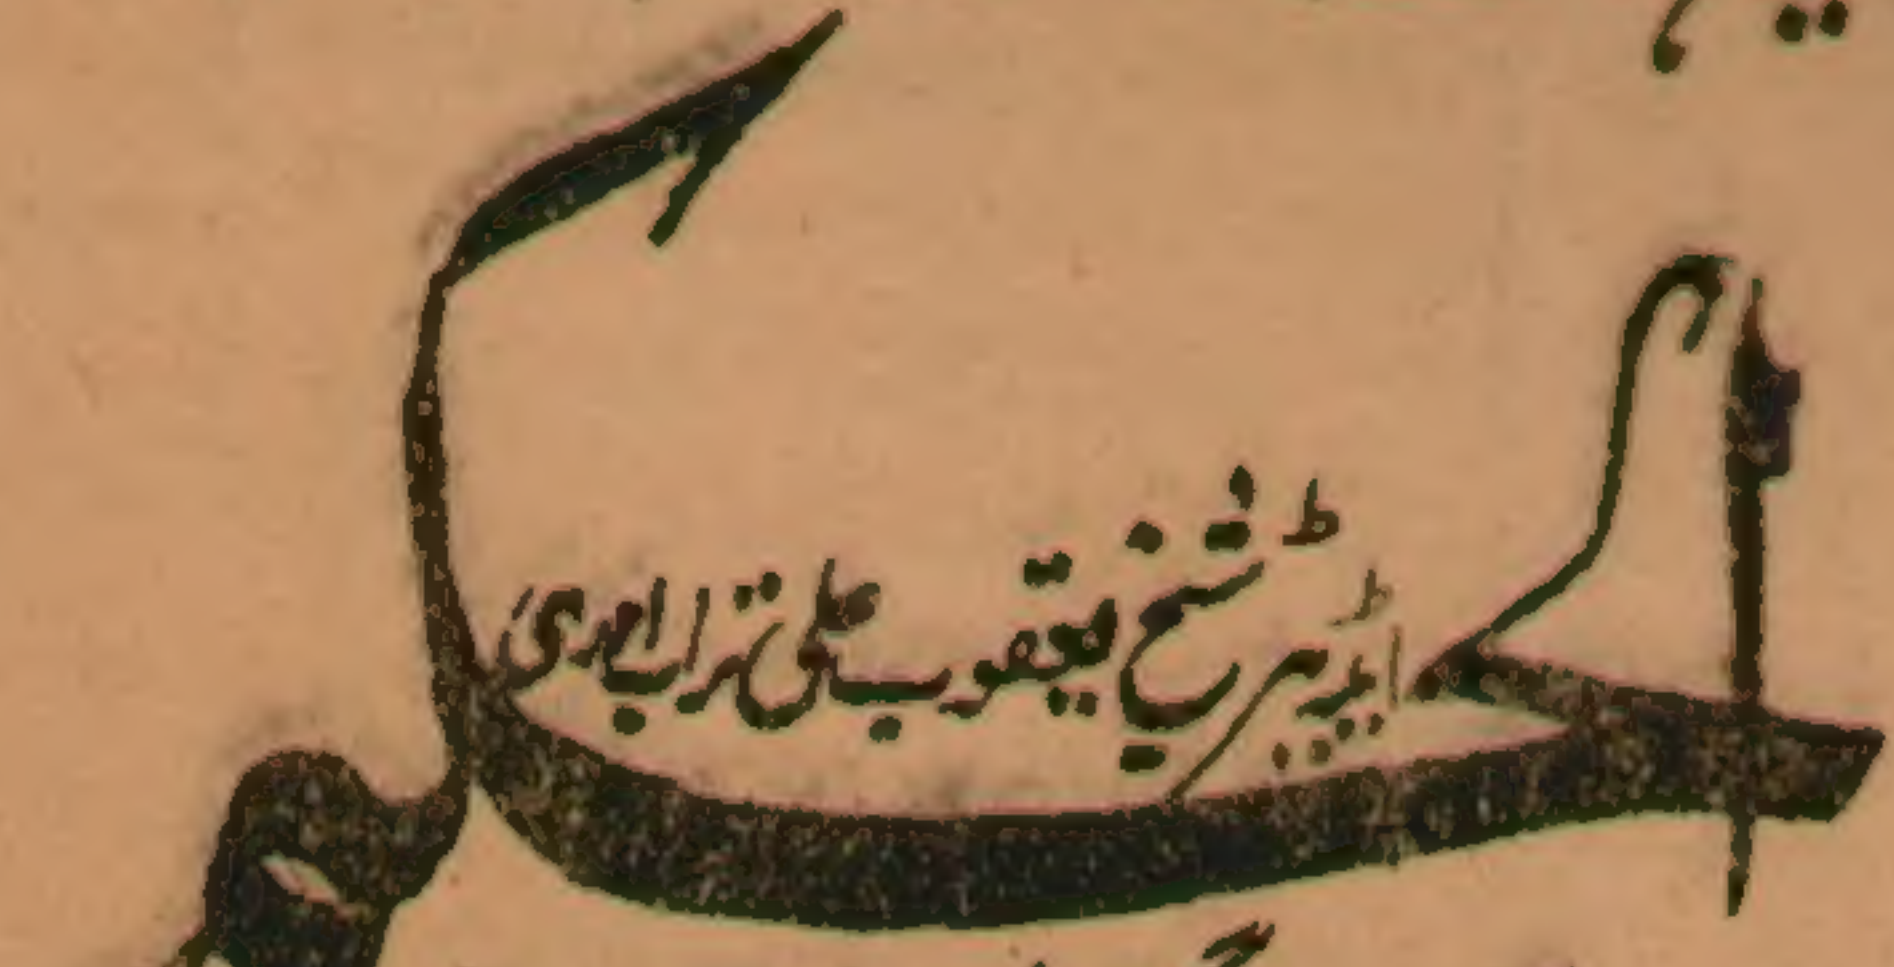 الحکم
ایڈیٹر شیخ یعقوب علی تراب احمدی